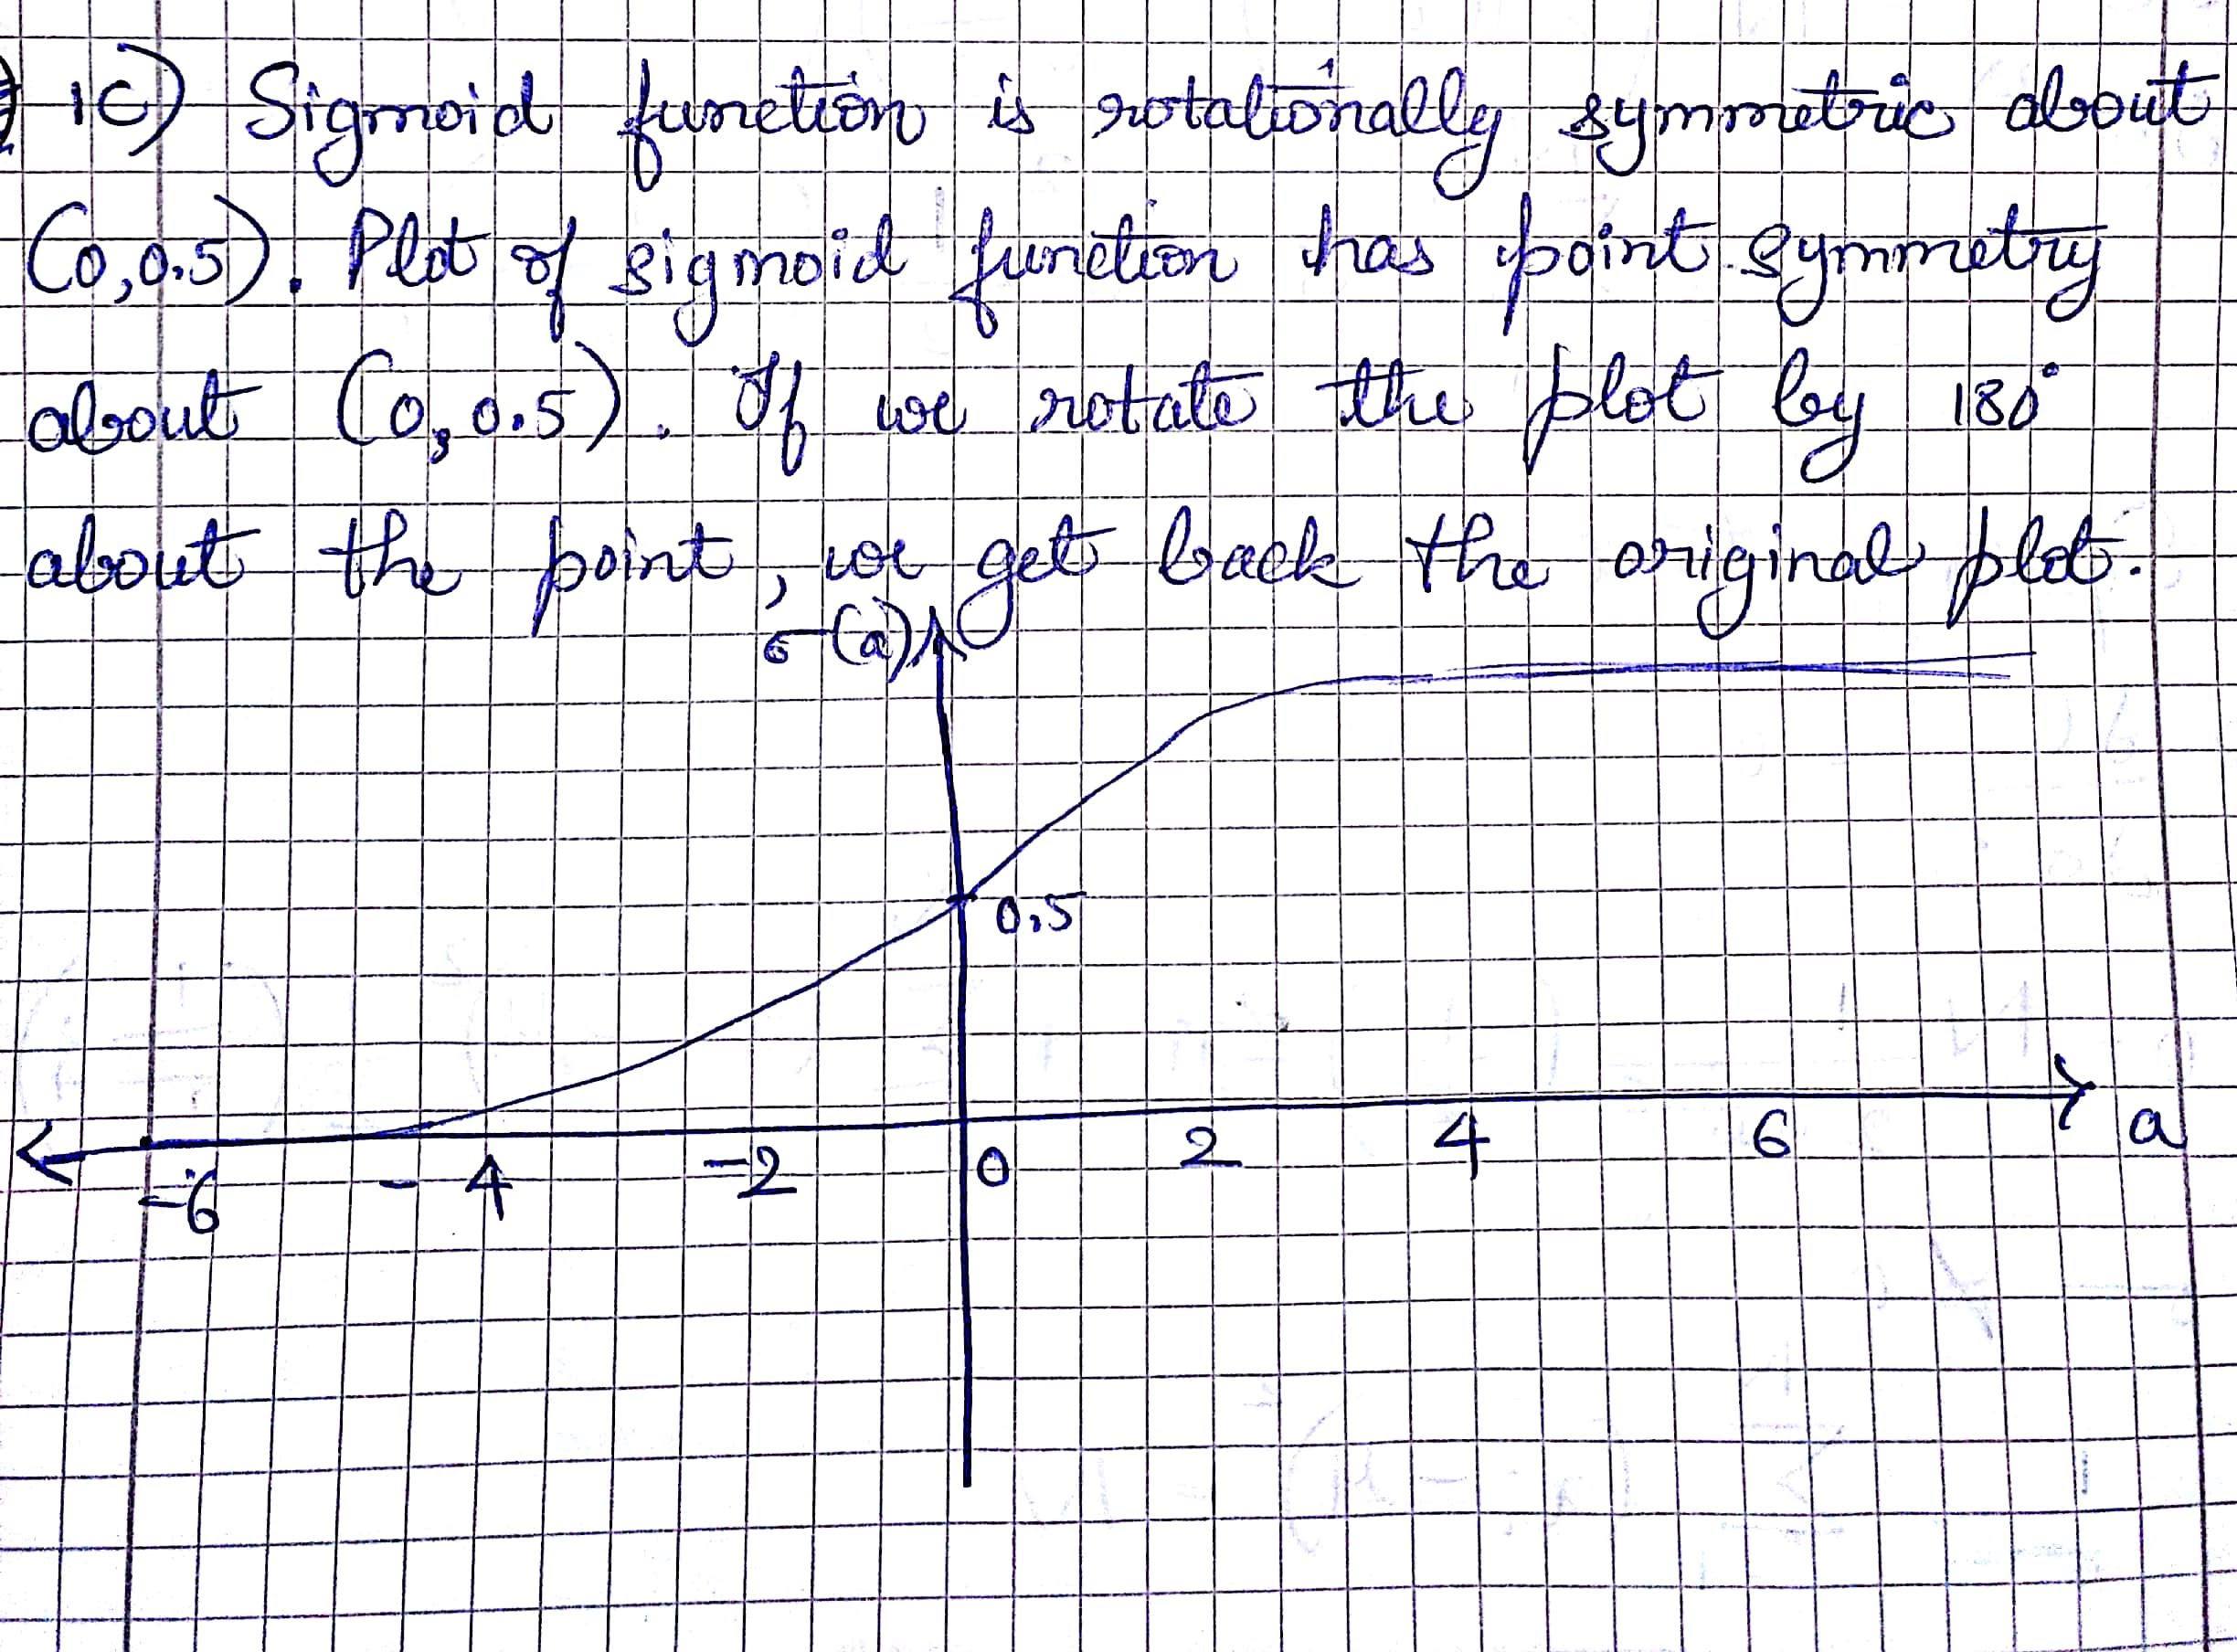 1C) Sigmoid function is rotationally symmetric about
(0,0.5). Plot of sigmoid function has point symmetry
about (0,0.5). If we rotate the plot by 180°
about the point, we get back the original plot.
σ(a)
0.5
-6 -4 -2 0 2 4 6 a